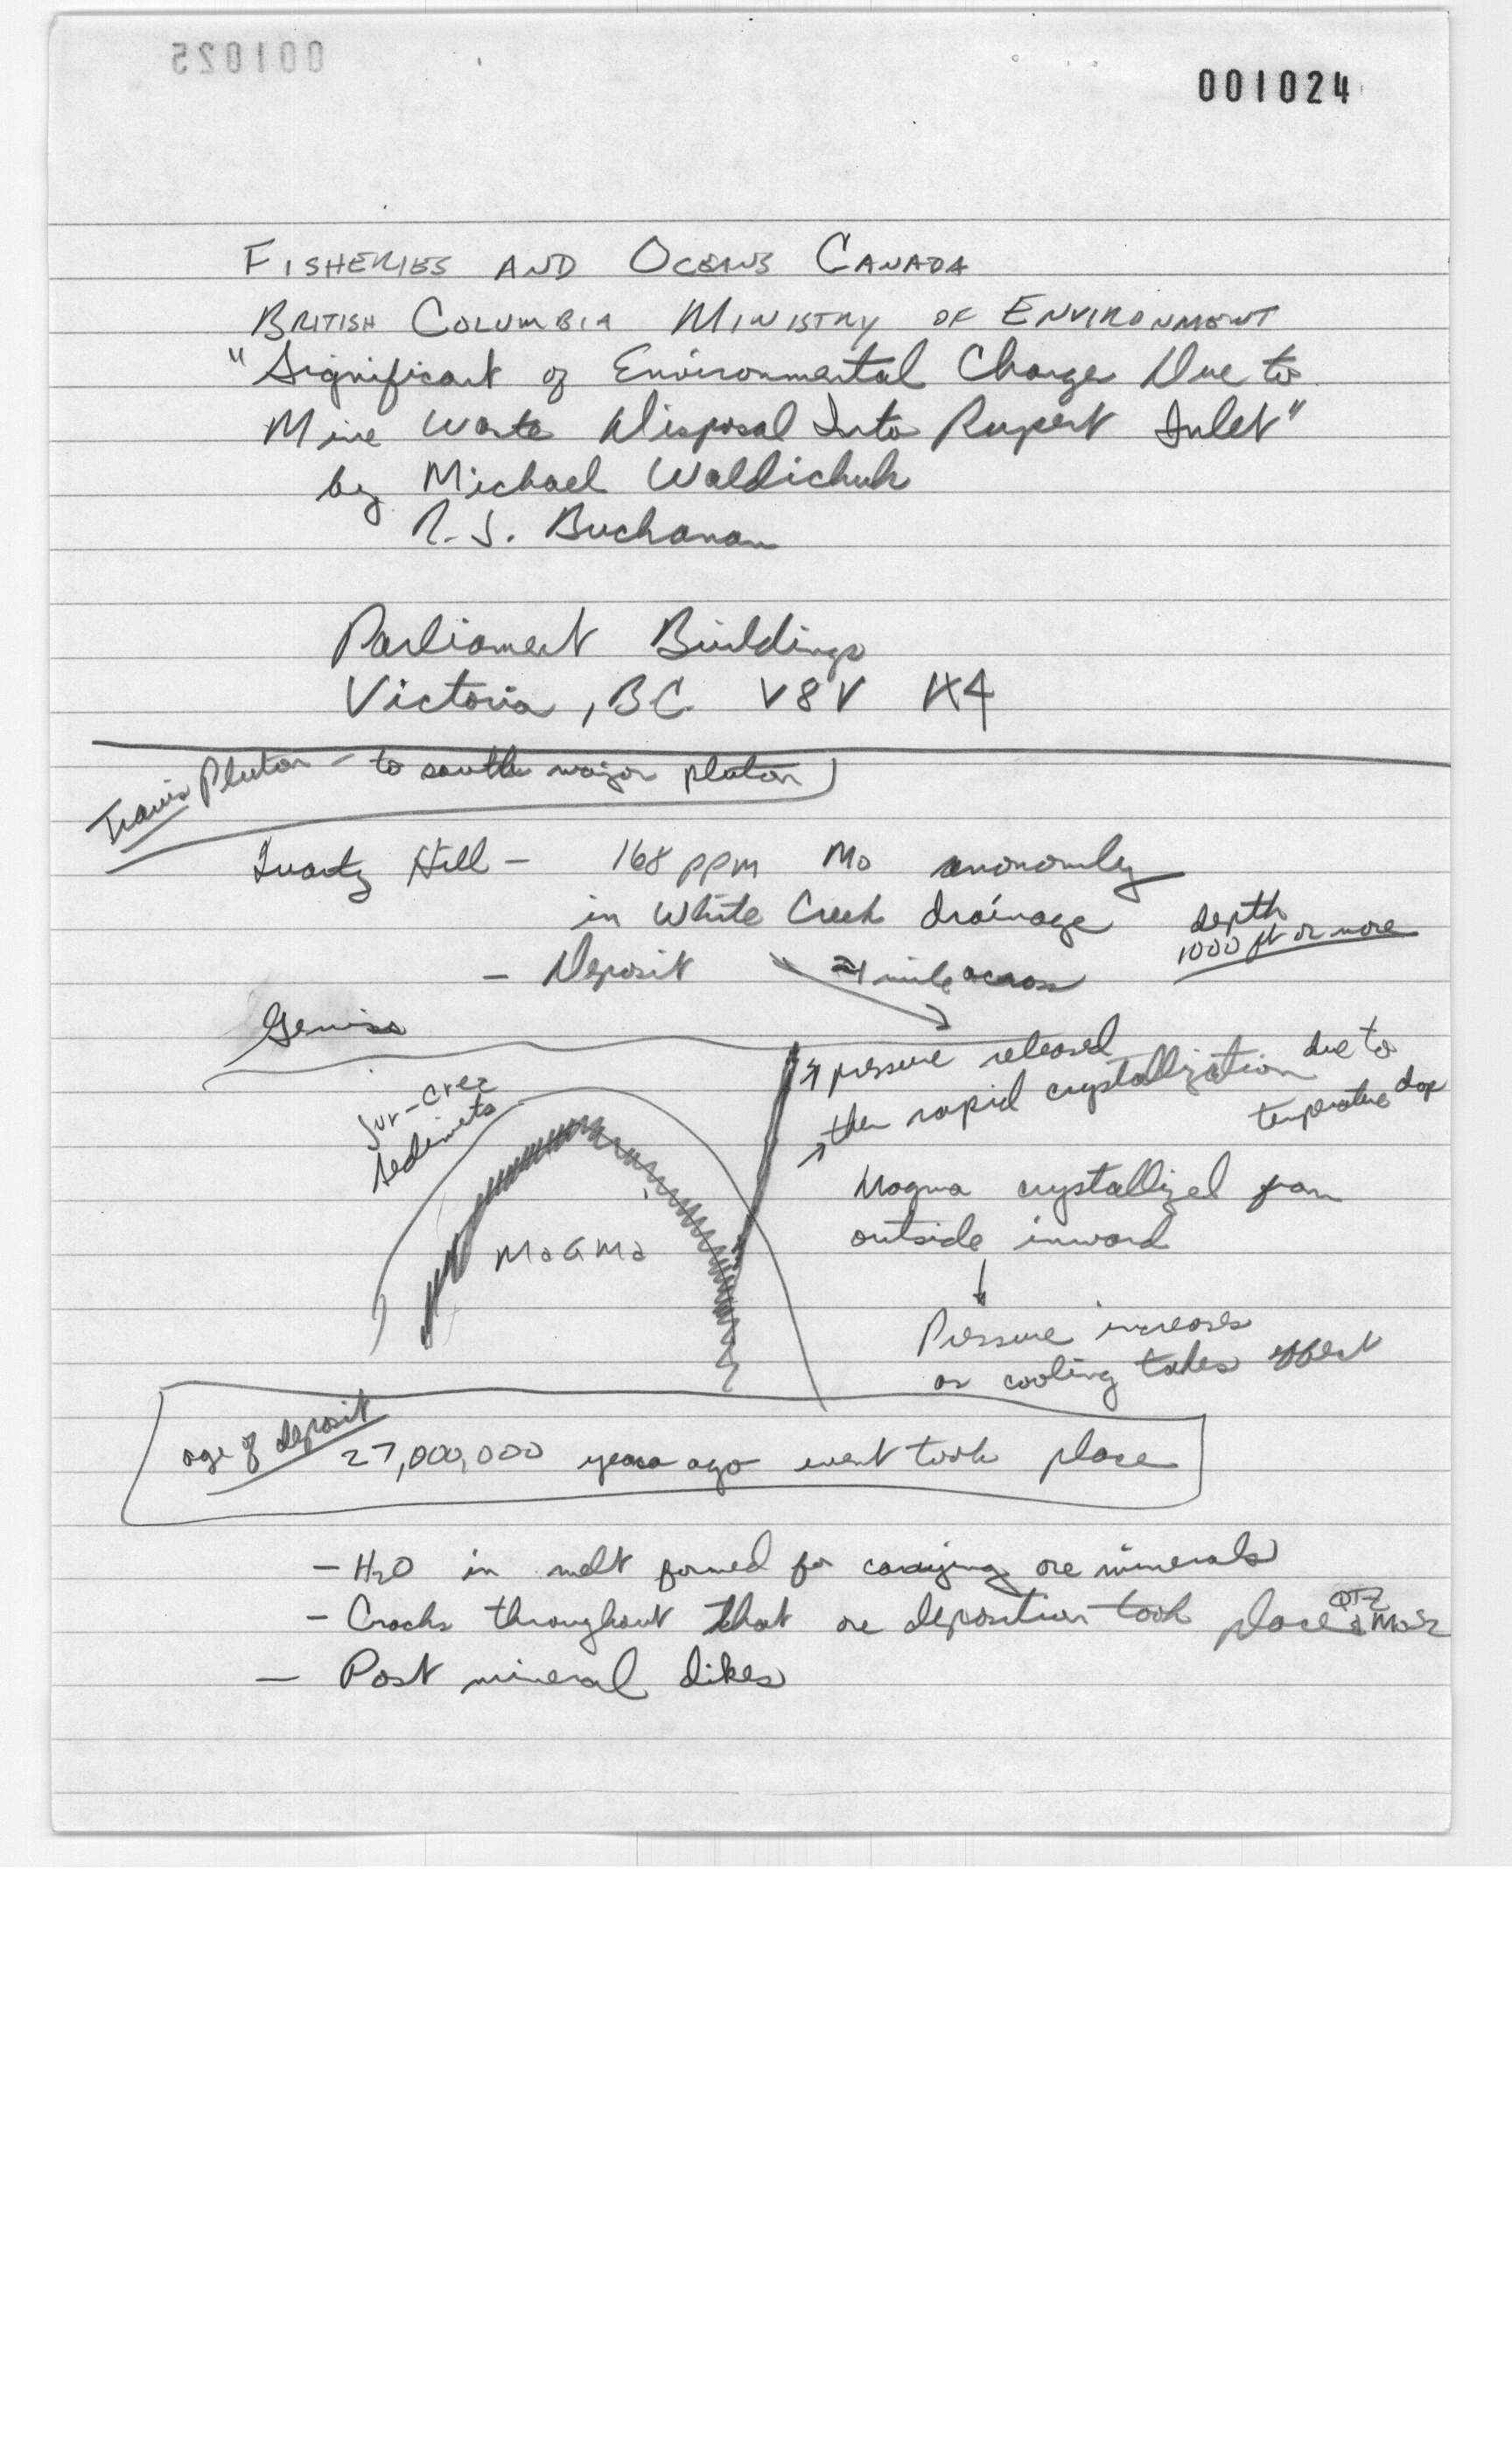 001025
001024
FISHERIES AND OCEANS CANADA
BRITISH COLUMBIA MINISTRY OF ENVIRONMENT
"Significant of Environmental Change Due to
Mine Waste Disposal Into Rupert Inlet"
by Michael Waldichuk
R. J. Buchanan
Parliament Buildings
Victoria, BC V8V 1X4
Pluton - to south major pluton
Quartz Hill - 168 ppm Mo anonomly
in White Creek drainage
depth
1000 ft or more
- Deposit ≈1 mile across
Geniss
Jur-Crez
Sediments
pressure released
then rapid crystallization due to
temperature drop
MaGMa
Magma crystallized from
outside inward
Pressure increases
as cooling takes effect
age of deposit
27,000,000 years ago event took place
- H2O in melt formed for carrying ore minerals
- Cracks throughout that ore deposition took place QTZ & MoS2
- Post mineral dikes